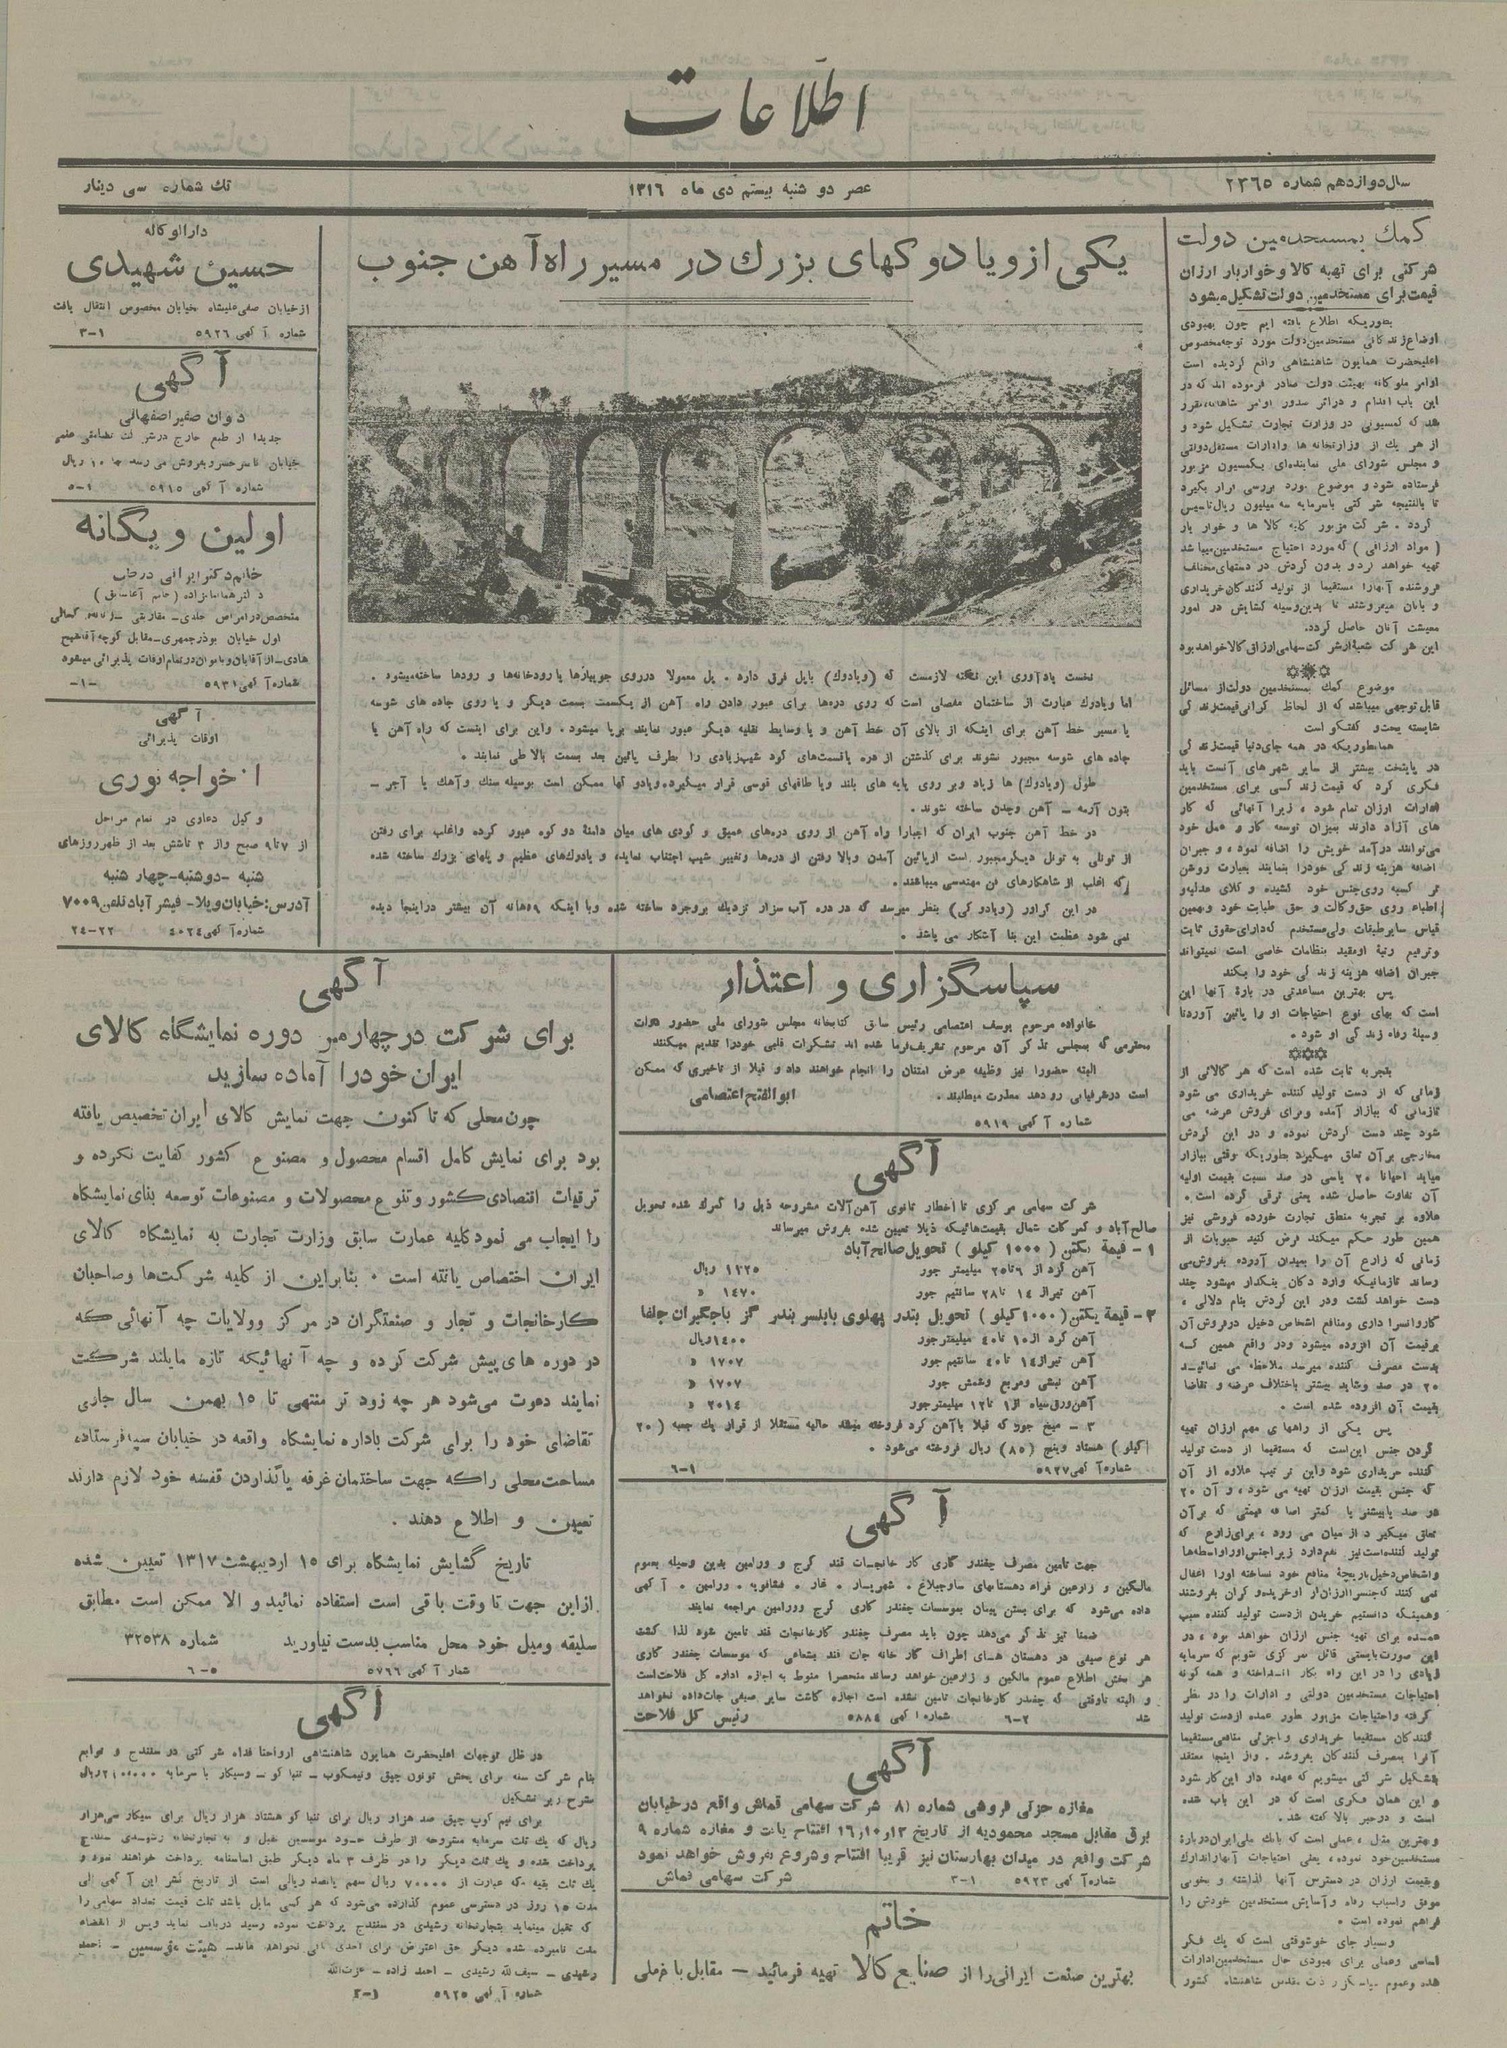 اطلاعات
سال دوازدهم شماره ۲۳۶۵
عصر دو شنبه بیستم دی ماه ۱۳۱۶
تك شماره سی دینار
كمك بمستخدمین دولت
شرکتی برای تهیه کالا و خواربار ارزان
قیمت برای مستخدمین دولت تشکیل میشود
بطوریکه اطلاع یافته ایم چون بهبودی
اوضاع زندگانی مستخدمین دولت مورد توجه مخصوص
اعلیحضرت همایون شاهنشاهی واقع گردیده است
اوامر ملوکانه بهیئت دولت صادر فرموده اند که در
این باب اقدام و در اثر صدور اوامر شاهانه مقرر
شد که کمسیونی در وزارت تجارت تشکیل شود و
از هر یك از وزارتخانه ها و ادارات مستقل دولتی
و مجلس شورای ملی نماینده‌ای بکمسیون مزبور
فرستاده شود و موضوع مورد بررسی قرار بگیرد
تا بالنتیجه شرکتی باسرمایه سه میلیون ریال تاسیس
گردد . شرکت مزبور کلیه کالا ها و خوار بار
( مواد ارزاقی ) که مورد احتیاج مستخدمین میباشد
تهیه خواهد کرد و بدون گردش در دستهای مختلف
فروشنده آنها را مستقیما از تولید کنندگان خریداری
و بآنان میفروشند تا بدین وسیله گشایش در امور
معیشت آنان حاصل گردد.
این شرکت شعبهٔ از شرکت سهامی ارزاق کالا خواهد بود
موضوع کمك بمستخدمین دولت از مسائل
قابل توجهی میباشد که از لحاظ گرانی قیمت زندگی
شایسته بحث و گفتگو است
همانطوریکه در همه جای دنیا قیمت زندگی
در پایتخت بیشتر از سایر شهرهای آنست باید
فکری کرد که قیمت زندگی برای مستخدمین
ادارات ارزان تمام شود ، زیرا آنهائی که کار
های آزاد دارند بمیزان توسعه کار و عمل خود
می‌توانند درآمد خویش را اضافه نموده و جبران
اضافه هزینه زندگی خود را بنمایند بعبارت روشن
تر کسبه روی جنس خود کشیده و کلای عدلیه و
اطباء روی حق وکالت و حق طبابت خود و بهمین
قیاس سایر طبقات ولی مستخدم که دارای حقوق ثابت
و ترفیع رتبهٔ او مقید بنظامات خاصی است نمیتواند
جبران اضافه هزینه زندگی خود را بکند
پس بهترین مساعدتی در بارهٔ آنها این
است که بهای نوع احتیاجات او را پائین آوردتا
وسیلهٔ رفاه زندگی او شود .
بتجربه ثابت شده است که هر کالائی از
زمانی که از دست تولید کننده خریداری می شود
تازمانی که ببازار آمده و برای فروش عرضه می
شود چند دست گردش نموده و در این گردش
مخارجی برآن تعلق میگیرد بطوریکه وقتی ببازار
میاید احیانا ۲۰ یاسی در صد نسبت بقیمت اولیه
آن تفاوت حاصل شده یعنی ترقی کرده است .
علاوه بر تجربه منطق تجارت خورده فروشی نیز
همین طور حکم میکند فرض کنید حبوبات از
زمانی که زارع آن را بمیدان آورده بفروش می
رساند تازمانیکه وارد دکان بنکدار میشود چند
دست خواهد گشت و در این گردش بنام دلالی ،
کاروانسرا داری و منافع اشخاص دخیل در فروش آن
برقیمت آن افزوده میشود و در واقع همین که
بدست مصرف کننده میرسد ملاحظه می نمائید
۲۰ در صد و شاید بیشتر باختلاف عرضه و تقاضا
بقیمت آن افزوده شده است .
پس یکی از راههای مهم ارزان تهیه
کردن جنس این است که مستقیما از دست تولید
کننده خریداری شود و این ترتیب علاوه از آن
که جنس بقیمت ارزان تهیه می شود ، و آن ۲۰
در صد یا بیشتر یا کمتر اضافه قیمتی که برآن
تعلق میگیرد از میان می رود ، برای زارع که
تولید کننده است نیز نفع دارد زیرا جنس او را واسطه‌ها
و اشخاص دخیل بازیچهٔ منافع خود نساخته او را اغفال
نمی کنند که جنس را ارزان از او خریده و گران بفروشند
و همینکه دانستیم خریدن از دست تولید کننده سبب
عمده برای تهیه جنس ارزان خواهد بود ، در
این صورت بایستی قائل بمرکزی شویم که سرمایه
زیادی را در این راه بکار انداخته و همه گونه
احتیاجات مستخدمین دولتی و ادارات را در نظر
گرفته و احتیاجات مزبور بطور عمده از دست تولید
کنندگان مستقیما خریداری و با جزئی منافعی مستقیما
آنرا بمصرف کنندگان بفروشد . و از اینجا معتقد
بتشکیل شرکتی میشویم که عهده دار این کار شود
و این همان فکری است که در این باب شده
است و در خبر بالا گفته شد .
و بهترین مثل ، عملی است که بانك ملی ایران دربارهٔ
مستخدمین خود نموده ، یعنی احتیاجات آنها را تدارك
و بقیمت ارزان در دسترس آنها گذاشته و بخوبی
موفق و اسباب رفاه و آسایش مستخدمین خودش را
فراهم نموده است .
و بسیار جای خوشوقتی است که یك فکر
اساسی و عملی برای بهبودی حال مستخدمین ادارات
شده و عموم سپاسگزار ذات مقدس شاهنشاه کشور
یکی از ویادوکهای بزرك در مسیر راه آهن جنوب
نخست یادآوری این نکته لازمست که (ویادوك) باپل فرق دارد . پل معمولا درروی جویبارها یارودخانه‌ها و رودها ساخته میشود .
اما ویادوك عبارت از ساختمان مفصلی است که روی دره‌ها برای عبور دادن راه آهن از یکسمت بسمت دیگر و یا روی جاده های شوسه
یا مسیر خط آهن برای اینکه از بالای آن خط آهن و یا وسایط نقلیه دیگر عبور نمایند برپا میشود . و این برای اینست که راه آهن یا
جاده های شوسه مجبور نشوند برای گذشتن از دره یا قسمت‌های گود شیب زیادی را بطرف پائین بعد بسمت بالا طی نمایند .
طول (ویادوك) ها زیاد و بر روی پایه های بلند و با طاقهای قوسی قرار میگیرد. ویادوکها ممکن است بوسیله سنك و آهك یا آجر –
بتون آرمه – آهن و چدن ساخته شوند .
در خط آهن جنوب ایران که اجبارا راه آهن از روی دره‌های عمیق و گودی های میان دامنهٔ دو کوه عبور کرده و اغلب برای رفتن
از تونلی به تونل دیگر مجبور است از پائین آمدن و بالا رفتن از دره‌ها و تغییر شیب اجتناب نماید، ویادوك‌های عظیم و پلهای بزرك ساخته شده
که اغلب از شاهکارهای فن مهندسی میباشند .
در این گراور (ویادوکی) بنظر میرسد که در دره آب سزار نزدیك بروجرد ساخته شده و با اینکه ۵ دهانه آن بیشتر در اینجا دیده
نمی شود عظمت این بنا آشکار می باشد .
دارالوکاله
حسین شهیدی
از خیابان صفی علیشاه خیابان مخصوص انتقال یافت
شماره آگهی ۵۹۲۶ ۱–۳
آگهی
دیوان صغیر اصفهانی
جدیدا از طبع خارج درشرکت تضامنی علمی
خیابان ناصر خسرو بفروش می رسد بها ۱۰ ریال
شماره آگهی ۵۹۱۵ ۱–۵
اولین و یگانه
خانم دکتر ایرانی درطب
متخصص در امراض جلدی – مقاربتی
اول خیابان بوذرجمهری – مقابل کوچه آقاشیخ
هادی – از آقایان و بانوان در تمام اوقات پذیرائی میشود
شماره آگهی ۵۹۳۱ –۱–
آگهی
اوقات پذیرائی
ا. خواجه نوری
وکیل دعاوی در تمام مراحل
از ۷ تا ۹ صبح و از ۳ تا شش بعد از ظهر روزهای
شنبه – دوشنبه – چهار شنبه
آدرس: خیابان ویلا – فیشر آباد تلفن ۷۰۰۹
شماره آگهی ۴۰۲۴ ۲۲–۲۴
سپاسگزاری و اعتذار
خانواده مرحوم یوسف اعتصامی رئیس سابق کتابخانه مجلس شورای ملی حضور ذوات
محترمی که بمجلس تذکر آن مرحوم تشریف فرما شده اند تشکرات قلبی خود را تقدیم میکنند
البته حضورا نیز وظیفه عرض امتنان را انجام خواهند داد و قبلا از تاخیری که ممکن
است در شرفیابی رو دهد معذرت میطلبند . ابوالفتح اعتصامی
شماره آگهی ۵۹۱۹
آگهی
شرکت سهامی مرکزی تا اخطار ثانوی آهن آلات مشروحه ذیل را گمرك شده تحویل
صالح آباد و گمرکات شمال بقیمت هائیکه ذیلا تعیین شده بفروش میرساند
۱ – قیمة یکتن ( ۱۰۰۰ کیلو ) تحویل صالح آباد
آهن گرد از ۶ تا ۲۵ میلیمتر جور ۱۲۲۵ ریال
آهن تیراز ۱۴ تا ۲۸ سانتیم جور ۱۴۷۰ »
۲ – قیمة یکتن (۱۰۰۰ کیلو ) تحویل بندر پهلوی بابلسر بندر گز باجگیران جلفا
آهن گرد از ۱۰ تا ۴۰ میلیمتر جور ۱۴۰۰ ریال
آهن تیراز ۱۴ تا ۴۰ سانتیم جور ۱۷۰۷ »
آهن نبشی و مربع و شمش جور ۱۷۰۷ »
آهن ورق سیاه از ۱ تا ۱۲ میلیمتر جور ۲۰۱۴ »
۳ – میخ جور که قبلا با آهن گرد فروخته میشد حالیه مستقلا از قرار یك جعبه ( ۲۰
کیلو ) هشتاد و پنج (۸۵) ریال فروخته می‌شود .
شماره آگهی ۵۹۲۷ ۱–۶
آگهی
جهت تامین مصرف چغندر کاری کار خانجات قند کرج و ورامین بدین وسیله بعموم
مالکین و زارعین قراء دهستانهای ساوجبلاغ . شهریار . غار . فشافویه . ورامین . آگهی
داده می‌شود که برای بستن پیمان بموسسات چغندر کاری کرج و ورامین مراجعه نمایند
ضمنا نیز تذکر می‌دهد چون باید مصرف چغندر کارخانجات قند تامین شود لذا کشت
هر نوع صیفی در دهستان های اطراف کار خانه جات قند بشعاعی که موسسات چغندر کاری
هر بخش اطلاع عموم مالکین و زارعین خواهد رساند منحصرا منوط به اجازه اداره کل فلاحت است
و البته تاوقتی که چغندر کارخانجات تامین نشده است اجازه کاشت سایر صیفی جات داده نخواهد
شد ۲–۶ شماره آگهی ۵۸۸۴ رئیس کل فلاحت
آگهی
مغازه جزئی فروشی شماره ۸ شرکت سهامی قماش واقع در خیابان
برق مقابل مسجد محمودیه از تاریخ ۱۶،۱۰،۱۳ افتتاح یافت و مغازه شماره ۹
شرکت واقع در میدان بهارستان نیز قریبا افتتاح و شروع بفروش خواهد نمود
شماره آگهی ۵۹۲۳ ۱–۳ شرکت سهامی قماش
خاتم
بهترین صنعت ایرانی را از صنایع کالا تهیه فرمائید – مقابل باغ ملی
آگهی
برای شرکت در چهارمین دوره نمایشگاه کالای
ایران خود را آماده سازید
چون محلی که تا کنون جهت نمایش کالای ایران تخصیص یافته
بود برای نمایش کامل اقسام محصول و مصنوع کشور کفایت نکرده و
ترقیات اقتصادی کشور و تنوع محصولات و مصنوعات توسعه بنای نمایشگاه
را ایجاب می نمود کلیه عمارت سابق وزارت تجارت به نمایشگاه کالای
ایران اختصاص یافته است . بنابراین از کلیه شرکت‌ها و صاحبان
کارخانجات و تجار و صنعتگران در مرکز و ولایات چه آنهائی که
در دوره های پیش شرکت کرده و چه آنهائیکه تازه مایلند شرکت
نمایند دعوت می‌شود هر چه زود تر منتهی تا ۱۵ بهمن سال جاری
تقاضای خود را برای شرکت باداره نمایشگاه واقعه در خیابان سپه فرستاده
مساحت محلی را که جهت ساختمان غرفه یا گذاردن قفسه خود لازم دارند
تعیین و اطلاع دهند .
تاریخ گشایش نمایشگاه برای ۱۵ اردیبهشت ۱۳۱۷ تعیین شده
از این جهت تا وقت باقی است استفاده نمائید و الا ممکن است مطابق
سلیقه و میل خود محل مناسب بدست نیاورید شماره ۳۲۵۳۸
شمار آگهی ۵۷۶۶ ۵–۶
آگهی
در ظل توجهات اعلیحضرت همایون شاهنشاهی ارواحنا فداه شرکتی در سنندج و توابع
بنام شرکت سنه برای پخش توتون چپق و نیمکوب – تنباکو – و سیگار با سرمایه ۲۱۰۰۰۰ ریال
بشرح زیر تشکیل
برای نیم کوب چپق صد هزار ریال برای تنباکو هشتاد هزار ریال برای سیگار سی هزار
ریال که یك ثلث سرمایه مشروحه از طرف خود موسسین قبل و به تجارتخانه رشیدی سنندج
پرداخت شده و یك ثلث دیگر را در ظرف ۳ ماه دیگر طبق اساسنامه پرداخت خواهند نمود و
یك ثلث بقیه که عبارت از ۷۰۰۰۰ ریال سهم پانصد ریالی است از تاریخ نشر این آگهی الی
مدت ۱۵ روز در دسترسی عموم گذارده می‌شود که هر کسی مایل باشد ثلث قیمت تعداد سهامی را
که تقبل مینماید بتجارتخانه رشیدی در سنندج پرداخت نموده رسید دریافت نماید و پس از انقضاء
مدت نامبرده شده دیگر حق اعتراض برای احدی باقی نخواهد ماند – هیئت موسسین – احمد
رشیدی – سیف الله رشیدی – احمد زاده – عزت‌الله
شماره آگهی ۵۹۲۵ ۱–۲